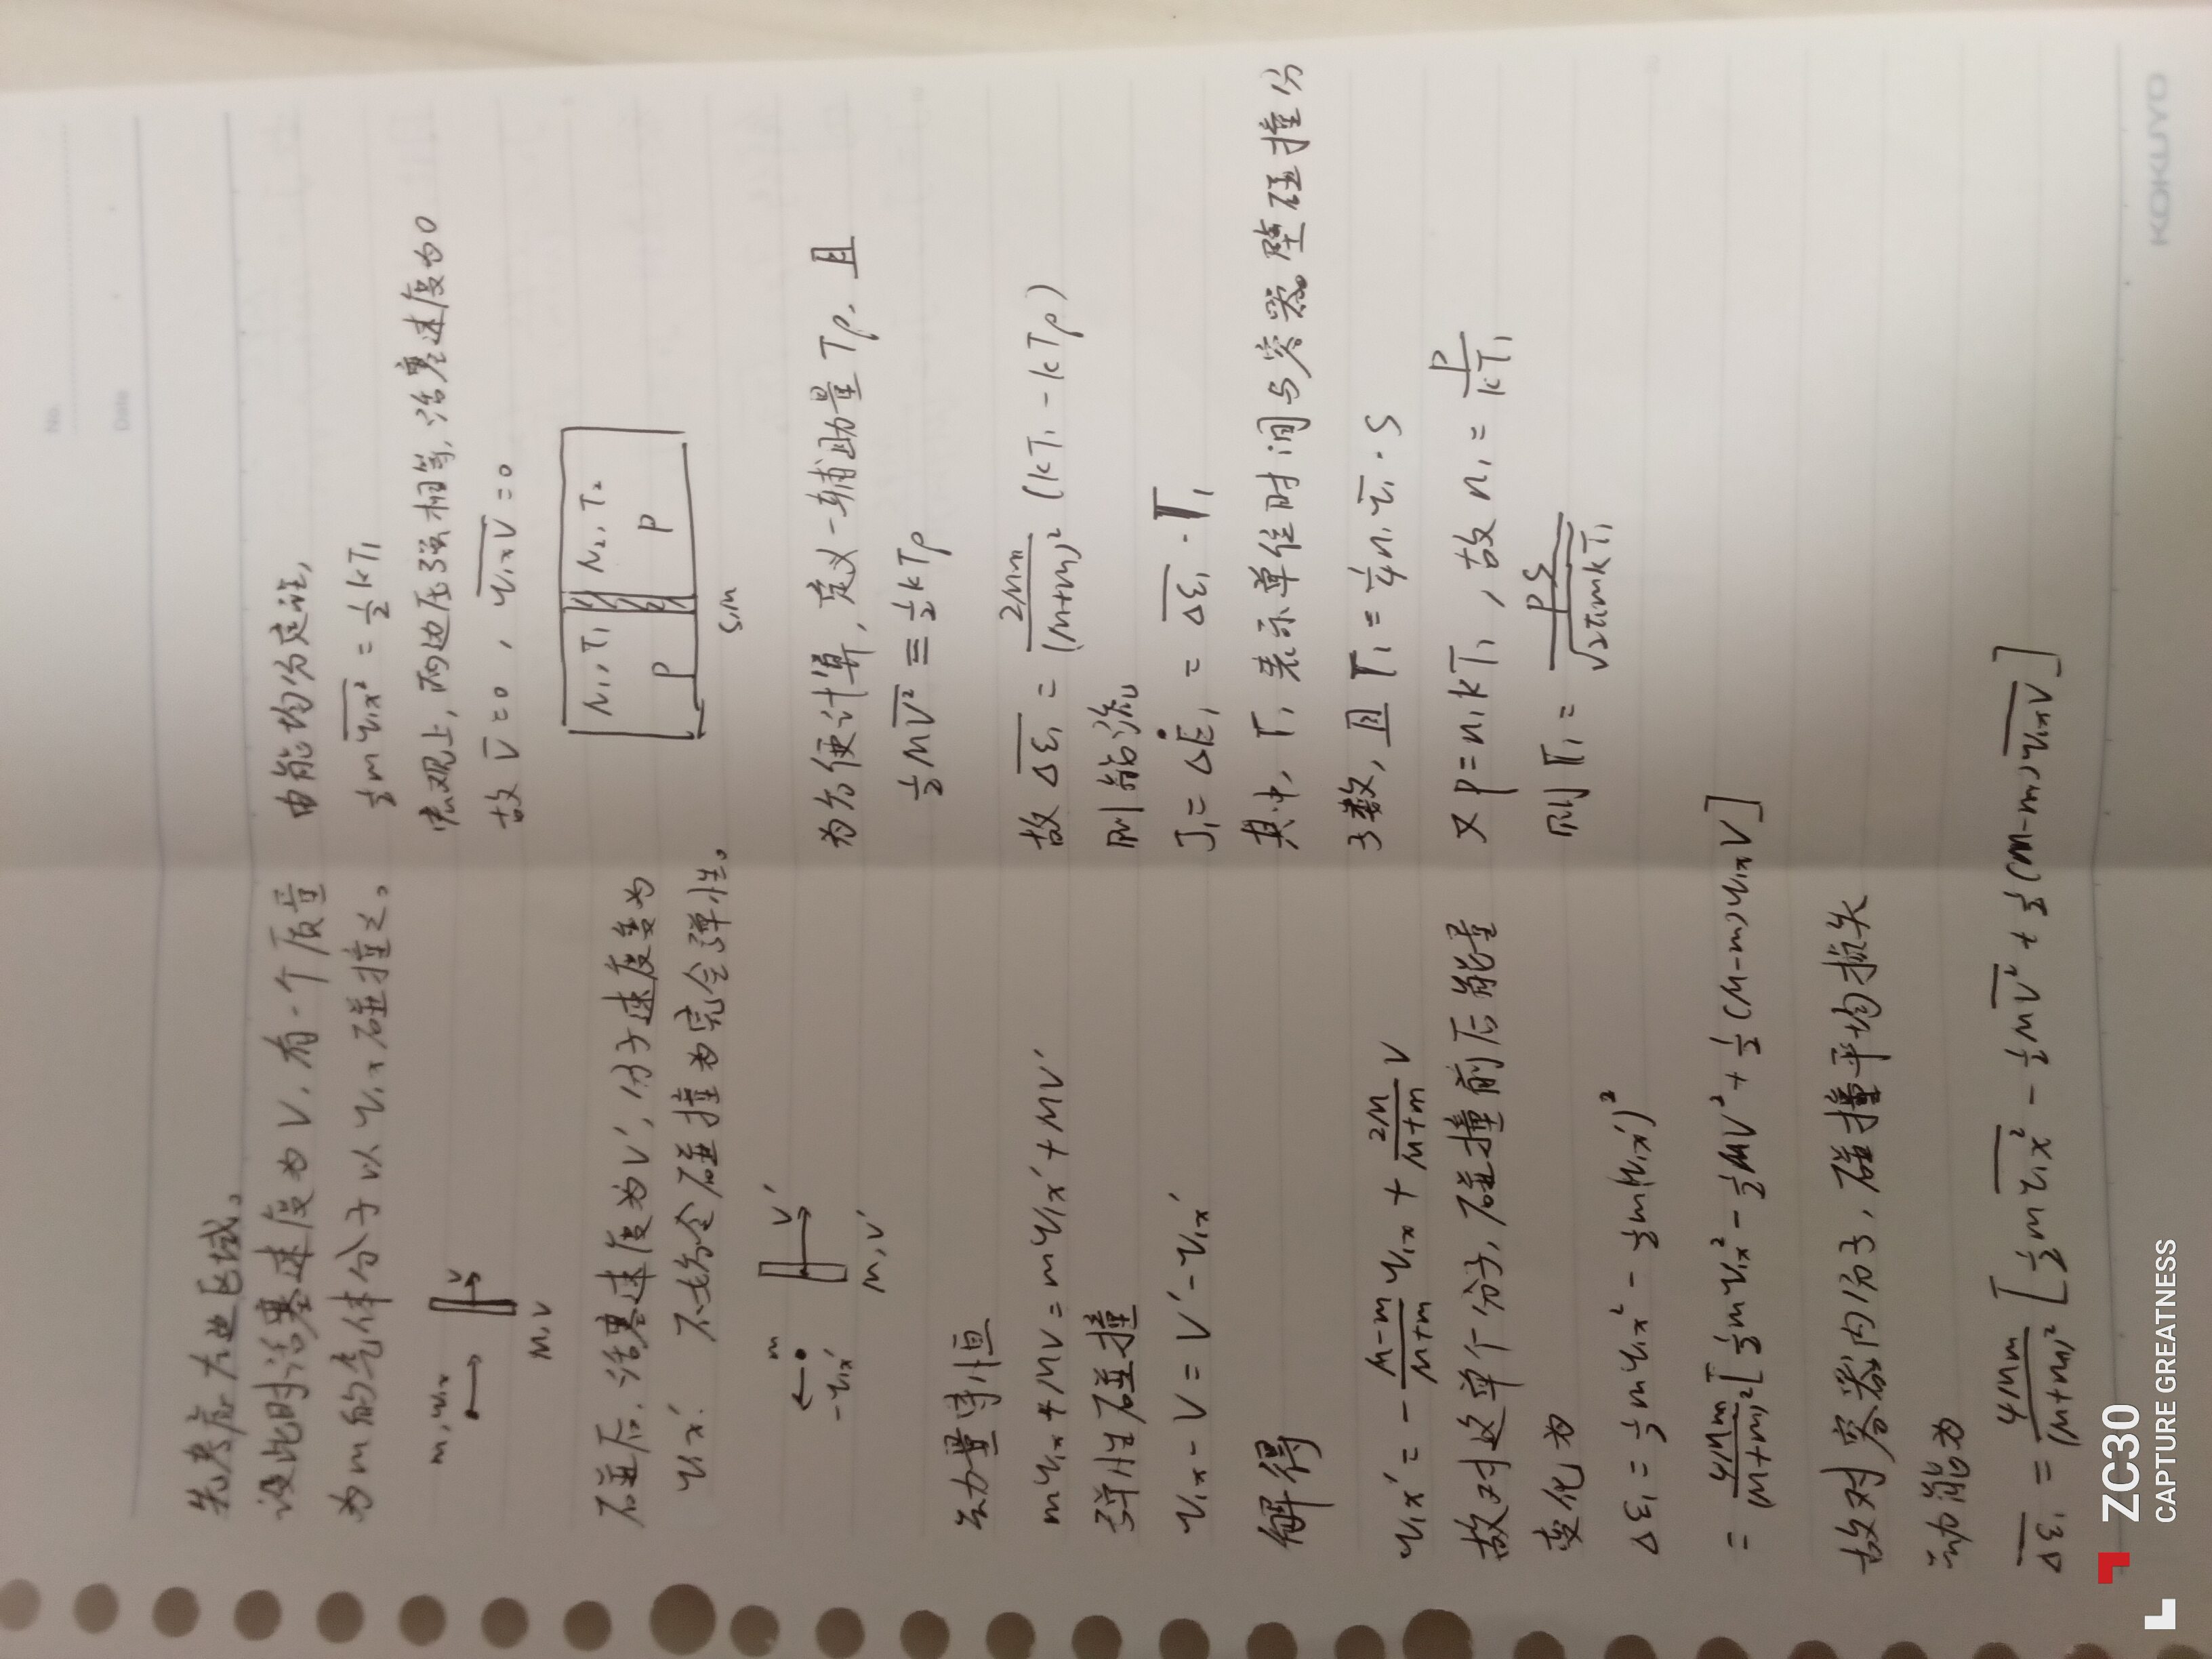 No.
Date
先考虑左边区域。
设此时活塞速度为V,有一个质量
为m的气体分子以 v₁ₓ碰撞之。
m, v₁ₓ
V
M, V
碰后,活塞速度为V′,分子速度变为
v₁ₓ′. 不妨令碰撞为完全弹性。
m
-v₁ₓ′
V′
M, V′
动量守恒
mv₁ₓ + MV = mv₁ₓ′ + MV′
弹性碰撞
v₁ₓ - V = V′ - v₁ₓ′
解得
v₁ₓ′ = - \frac{M-m}{M+m} v₁ₓ + \frac{2M}{M+m} V
故对这单个分子,碰撞前后能量
变化为
Δε₁ = ½mv₁ₓ² - ½m(v₁ₓ′)²
= \frac{4Mm}{(M+m)²} [½mv₁ₓ² - ½MV² + ½(M-m)v₁ₓV]
故对容器内分子,碰撞平均损失
动能为
\overline{Δε₁} = \frac{4Mm}{(M+m)²} [½m\overline{v₁ₓ²} - ½M\overline{V²} + ½(M-m)\overline{v₁ₓV}]
由能均分定理,
½m\overline{v₁ₓ²} = ½kT₁
宏观上,两边压强相等,活塞速度为0
故 \overline{V} = 0, \overline{v₁ₓV} = 0
N₁, T₁ N₂, T₂
P P
S, M
为方便计算,定义一辅助量 Tp, 且
½M\overline{V²} ≡ ½kTp
故 \overline{Δε₁} = \frac{2Mm}{(M+m)²} (kT₁ - kTp)
则能流
J₁ = ΔĖ₁ = \overline{Δε₁} · Γ₁
其中, Γ₁ 表示单位时间与实察壁碰撞分
子数,且 Γ₁ = ¼n₁\overline{v₁} · S
又 P = n₁kT₁, 故 n₁ = \frac{P}{kT₁}
则 Γ₁ = \frac{PS}{\sqrt{2πmkT₁}}
KOKUYO
ZC30
CAPTURE GREATNESS